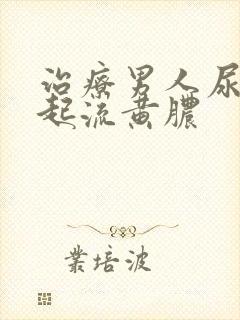 治療男人尿
起流黄膿
業培波